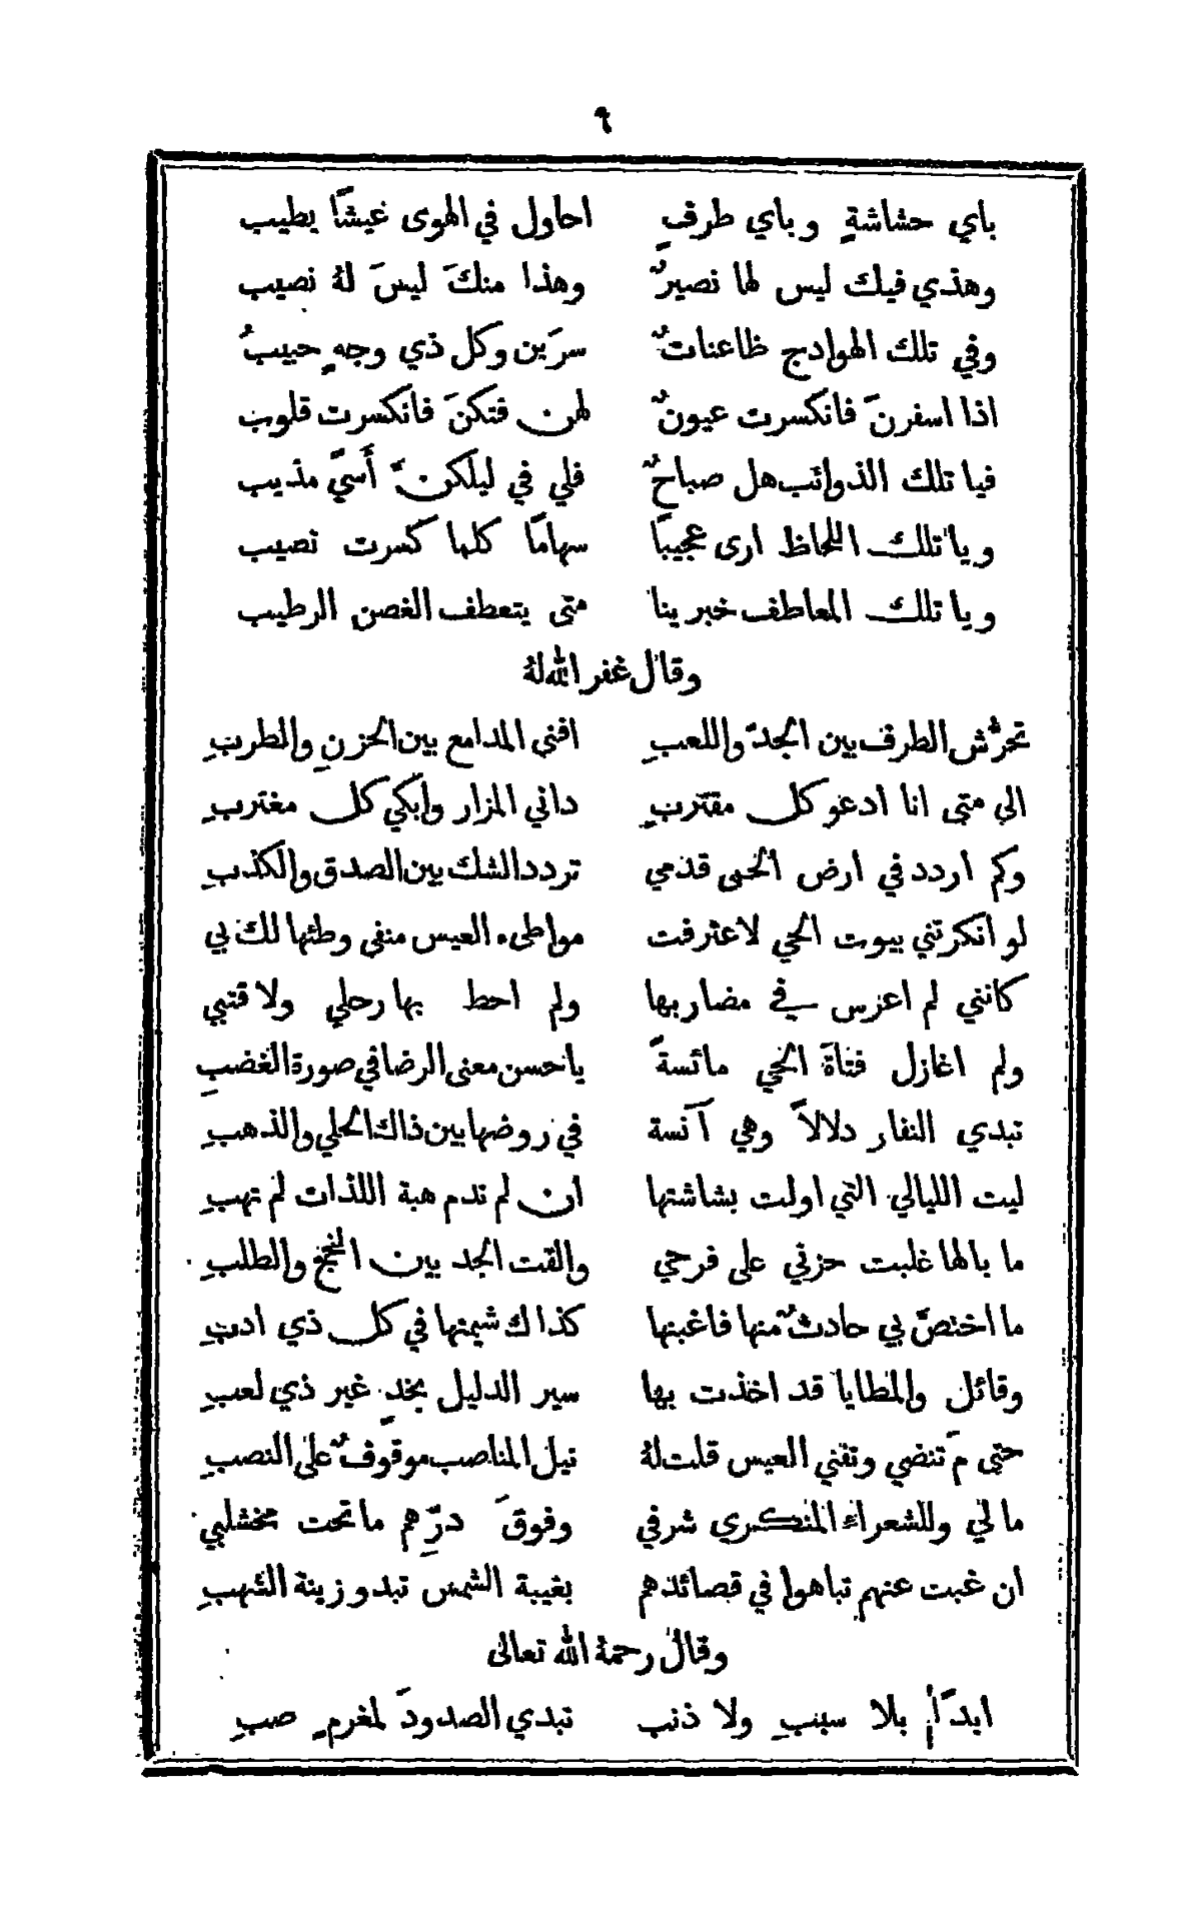 ٩
باي حشاشةٍ وباي طرفٍ احاول في الهوى عيشًا يطيب
وهذي فيك ليس لها نصيرٌ وهذا منكَ ليسَ لهُ نصيب
وفي تلك الهوادج ظاعناتٌ سرَبن وكل ذي وجهٍ حبيبُ
اذا اسفرنَ فانكسرت عيونٌ لهن فتكنَ فانكسرت قلوب
فيا تلك الذوائب هل صباحٌ فلي في ليلكنَّ أَسىً مذيب
ويا تلك اللحاظ ارى عجيبًا سهامًا كلما كسرت تصيب
ويا تلك المعاطف خبرينا متى يتعطف الغصن الرطيب
وقال غفر الله لهُ
تحرُّش الطرف بين الجدّ واللعبِ افنى المدامع بين الحزنِ والطربِ
الى متى انا ادعو كل مقتربِ داني المزار وابكي كل مغتربِ
وكم اردد في ارض الحمى قدمي تردد الشك بين الصدق والكذبِ
لو انكرتني بيوت الحي لاعترفت مواطىء العيس منفى وطئها لك بي
كانني لم اعرس في مضاربها ولم احط بها رحلي ولا قتبي
ولم اغازل فتاة الحي مائسةً ياحسن معنى الرضا في صورة الغضبِ
تبدي النفار دلالاً وهي آنسة في روضها بين ذاك الحلي والذهبِ
ليت الليالي التي اولت بشاشتها ان لم تدم هبة اللذات لم تهبِ
ما بالها غلبت حزني على فرحي والقت الجد بين النجح والطلبِ
ما اختصَّ بي حادثٌ منها فاغبنها كذاك شيمتها في كل ذي ادبِ
وقائل والمطايا قد اخذت بها سير الدليل بخدٍ غير ذي لعبِ
حتى مَ تنضي وتفني العيس قلت لهُ نيل المناصب موقوفٌ على النصبِ
ما لي وللشعراء المنكري شرفي وفوقَ درّهم ما تحت مخشلبي
ان غبت عنهم تباهوا في قصائدهم بغيبة الشمس تبدو زينة الشهبِ
وقال رحمهُ الله تعالى
ابدًا بلا سببٍ ولا ذنب تبدي الصدودَ لمغرمٍ صبِ